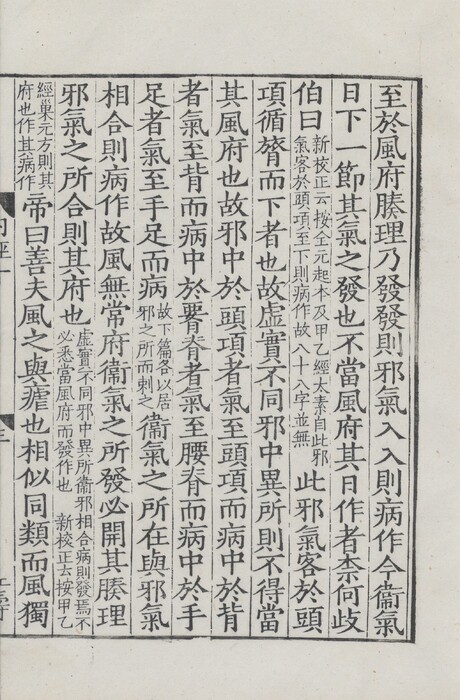 至於風府腠理乃發發則邪氣入入則病作今衞氣
日下一節其氣之發也不當風府其日作者柰何歧
伯曰新校正云按全元起本及甲乙經太素自此邪
氣客於頭項至下則病作故八十八字並無此邪氣客於頭
項循膂而下者也故虛實不同邪中異所則不得當
其風府也故邪中於頭項者氣至頭項而病中於背
者氣至背而病中於腰脊者氣至腰脊而病中於手
足者氣至手足而病故下篇各以居
邪之所而刺之衞氣之所在與邪氣
相合則病作故風無常府衞氣之所發必開其腠理
邪氣之所合則其府也虛實不同邪中異所衞邪相合病則發焉不
必悉當風府而發作也 新校正云按甲乙
經巢元方則其
府也作其病作帝曰善夫風之與瘧也相似同類而風獨